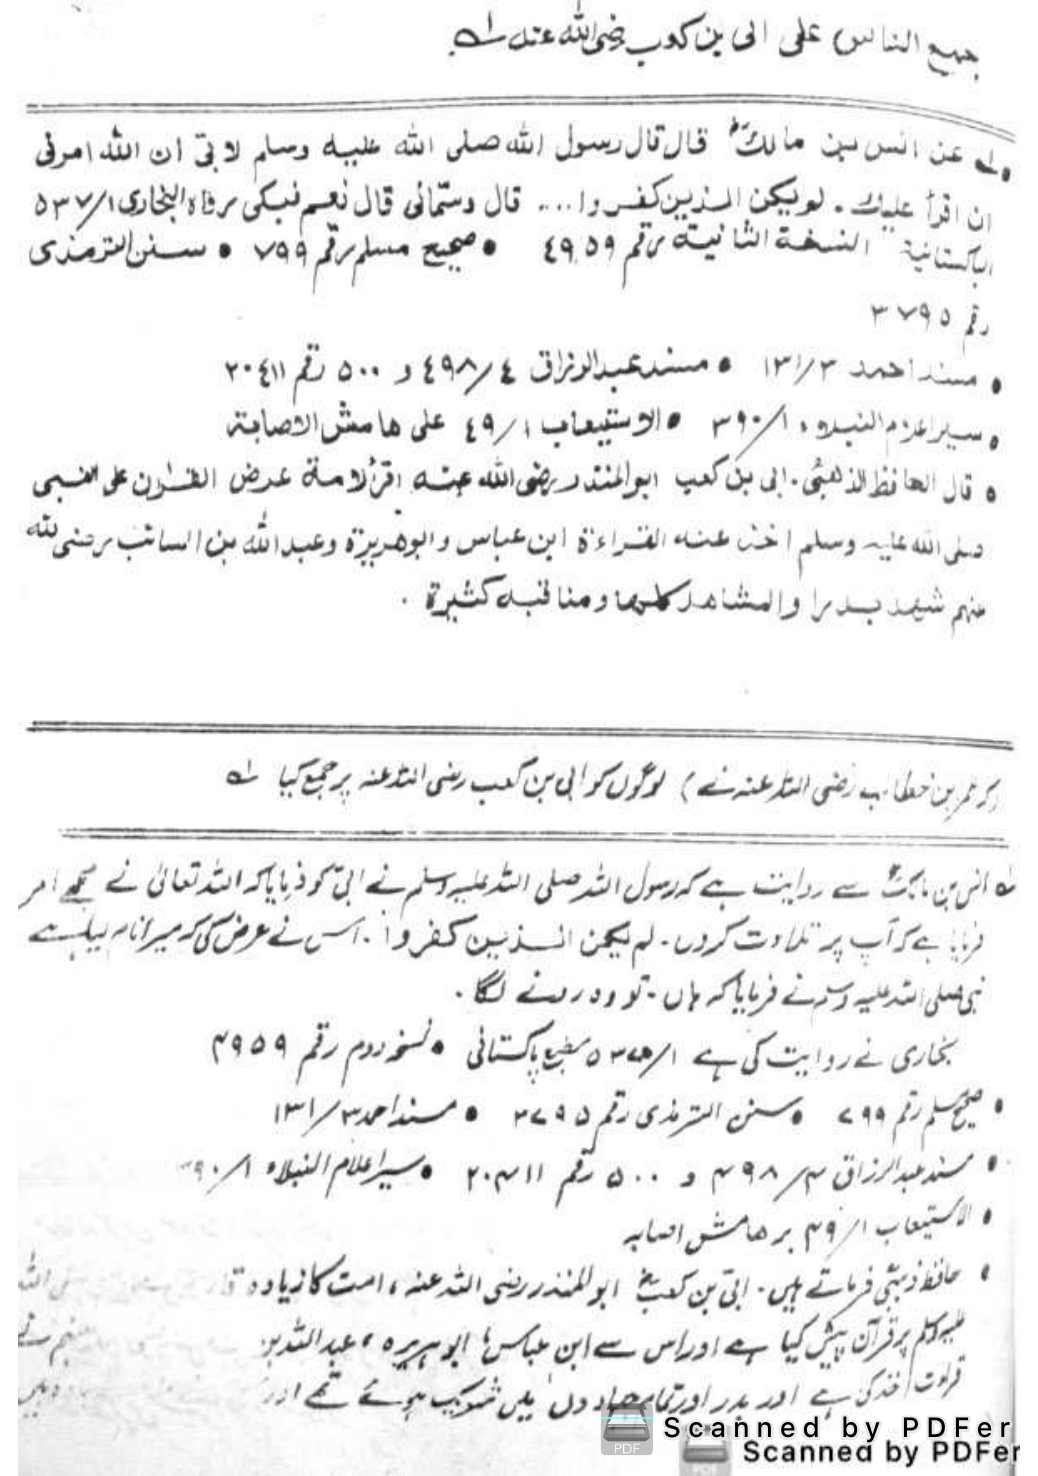 جميع الناس على ابى بن كعب رضى الله عنه لـه
لـه عن انس بن مالك قال قال رسول الله صلى الله عليه وسلم لابى ان الله امرنى
ان اقرأ عليك . لم يكن الذين كفروا .... قال وسمّانى قال نعم فبكى رواه البخارى ١/٥٣٧
الباكستانية النسخة الثانية رقم ٤٩٥٩ • صحيح مسلم رقم ٧٩٩ • سنن الترمذى
رقم ٣٧٩٥
• مسند احمد ٣/١٣١ • مسند عبد الرزاق ٤/٤٩٨ و ٥٠٠ رقم ٢٠٤١١
• سير اعلام النبلاء ١/٣٩٠ • الاستيعاب ١/٤٩ على هامش الاصابة
• قال الحافظ الذهبىؒ . ابى بن كعب ابو المنذر رضى الله عنه اقرأ لامة عرض القرآن على النبى
صلى الله عليه وسلم اخذ عنه القراءة ابن عباس و ابو هريرة وعبد الله بن السائب رضى الله
عنهم شهد بدرا والمشاهد كلها ومناقبه كثيرة .
(کہ عمر بن خطاب رضی اللہ عنہ نے) لوگوں کو ابی بن کعب رضی اللہ عنہ پر جمع کیا لـه
لـه انس بن مالکؓ سے روایت ہے کہ رسول اللہ صلی اللہ علیہ وسلم نے ابیّ کو فرمایا کہ اللہ تعالیٰ نے مجھے امر
فرمایا ہے کہ آپ پر تلاوت کروں ۔ لم یکن الذین کفروا ۔ اس نے عرض کی کہ میرا نام لیا ہے
نبی صلی اللہ علیہ وسلم نے فرمایا کہ ہاں ۔ تو وہ رونے لگا ۔
بخاری نے روایت کی ہے ۱/۵۳۷ طبع پاکستانی • نسخہ دوم رقم ۴۹۵۹
• صحیح مسلم رقم ۷۹۹ • سنن الترمذی رقم ۳۷۹۵ • مسند احمد ۳/۱۳۱
• مسند عبد الرزاق ۴/۴۹۸ و ۵۰۰ رقم ۲۰۴۱۱ • سیر اعلام النبلاء ۱/۳۹۰
• الاستیعاب ۱/۴۹ بر هامش اصابہ
• حافظ ذہبیؒ فرماتے ہیں ۔ ابیّ بن کعبؓ ابو المنذر رضی اللہ عنہ ، امت کا زیادہ
علیہ وسلم پر قرآن پیش کیا ہے اور اس سے ابن عباس، ابو ہریرہ ، عبد اللہ بن
قراءت اخذ کی ہے اور بدر اور تمام جہادوں میں شریک ہوئے تھے اور
Scanned by PDFer
Scanned by PDFer